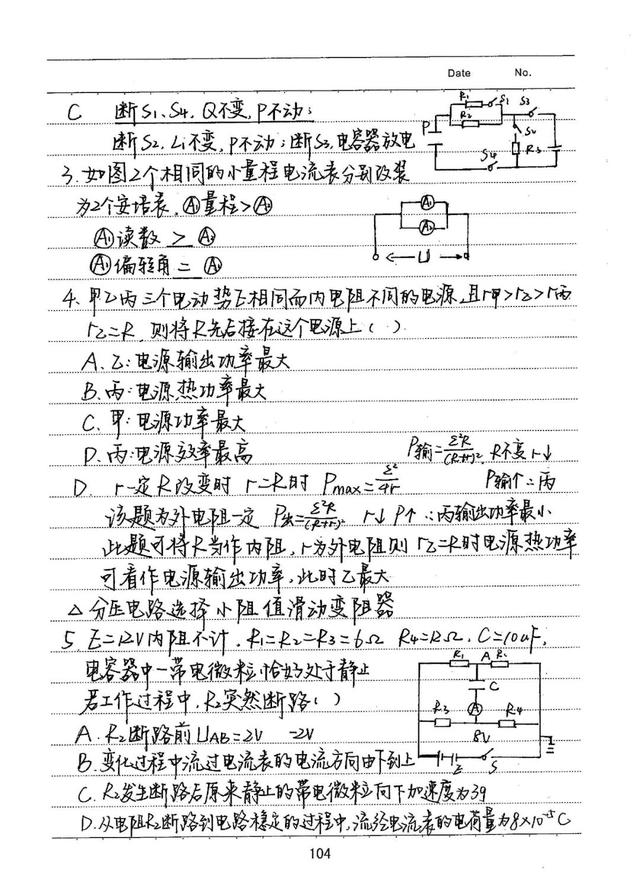 Date No.
C 断S1、S4, Q不变, P不动;
断S2, Li不变, P不动; 断S3, 电容器放电
R1 S1 S3
R2
P S2
R3
S4
3. 如图2个相同的小量程电流表分别改装
为2个安培表, A1量程>A2
A1读数 > A2
A1偏转角 = A2
A1
A2
U
4. 甲乙丙三个电动势E相同而内电阻不同的电源, 且r甲>r乙>r丙
r乙=R, 则将R先后接在这个电源上( )
A. 乙:电源输出功率最大
B. 丙:电源热功率最大
C. 甲:电源功率最大
D. 丙:电源效率最高
P输=ε²R/(R+r)², R不变 r↓
P输↑∴丙
D. r一定R改变时 r=R时 Pmax=ε²/4r
该题为外电阻一定 P出=ε²R/(R+r)² r↓ P↑ ∴丙输出功率最小
此题可将R当作内阻, r为外电阻则 r乙=R时电源热功率
可看作电源输出功率, 此时乙最大
△分压电路选择小阻值滑动变阻器
5. E=12V内阻不计, R1=R2=R3=6Ω R4=12Ω, C=10uF,
电容器中一带电微粒恰好处于静止
若工作过程中, R2突然断路( )
R1 A R2
C
A
R3 R4
8V
E S
A. R2断路前UAB=2V -2V
B. 变化过程中流过电流表的电流方向由下到上
C. R2发生断路后原来静止的带电微粒向下加速度为3g
D. 从电阻R2断路到电路稳定的过程中, 流经电流表的电荷量为8×10⁻⁵C
104